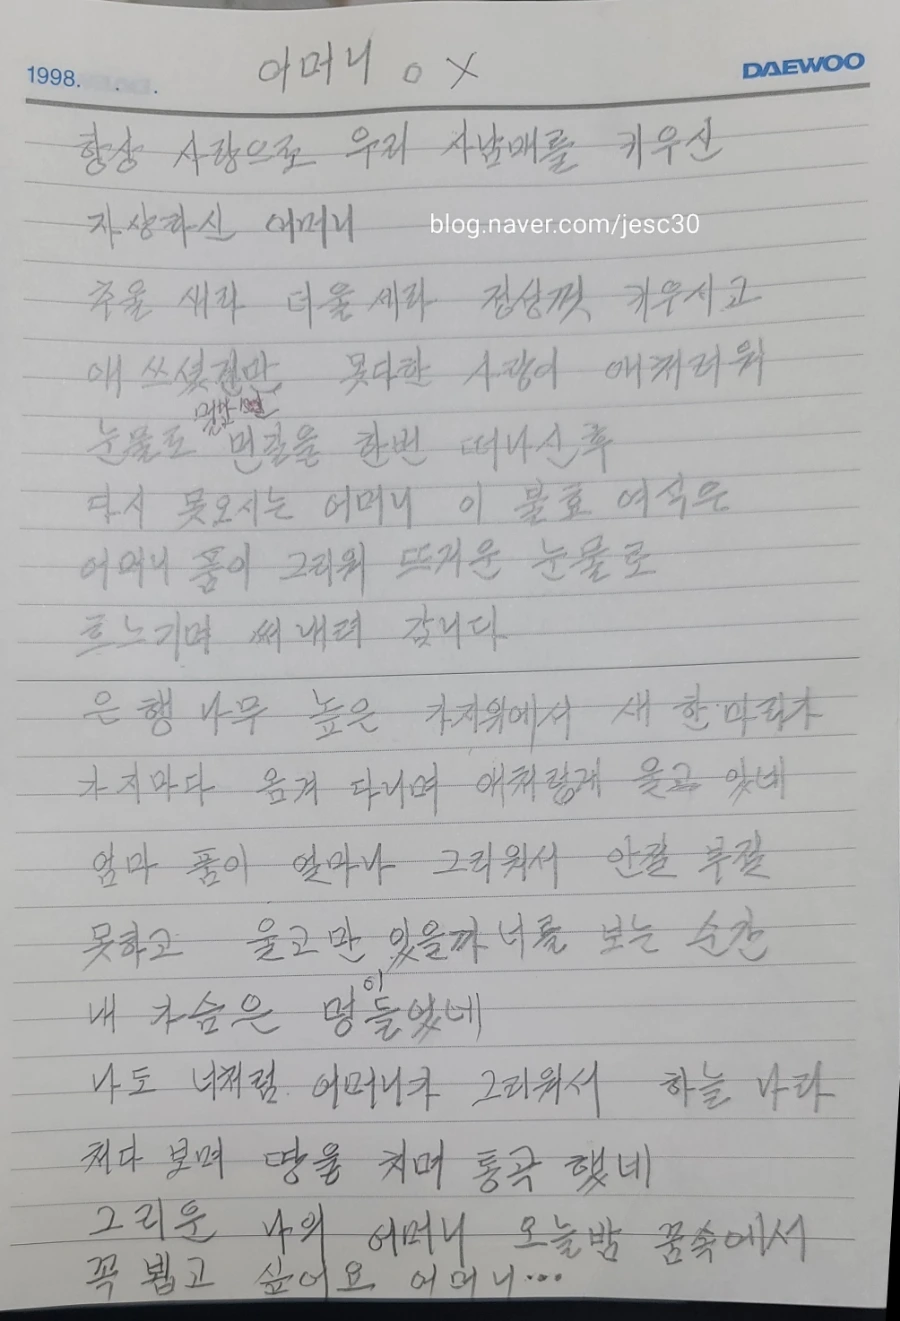 1998. . .
어머니 o X
DAEWOO
항상 사랑으로 우리 사남매를 키우신
자상하신 어머니
blog.naver.com/jesc30
추울 새라 더울세라 정성껏 키우시고
애 쓰셨건만 못다한 사랑이 애처러워
눈물로 먼길을 한번 떠나신후
다시 못오시는 어머니 이 불효 여식은
어머니 품이 그리워 뜨거운 눈물로
흐느기며 써 내려 갑니다
은행 나무 높은 가지위에서 새 한마리가
가지마다 옴겨 다니며 애처럽게 울고 있네
엄마 품이 얼마나 그리워서 안절 부절
못하고 울고만 있을까 너를 보는 순간
내 가슴은 멍이 들었네
나도 너처럼 어머니가 그리워서 하늘 나라
처다 보며 땅을 치며 통곡 했네
그리운 나의 어머니 오늘밤 꿈속에서
꼭 뵙고 싶어요 어머니...